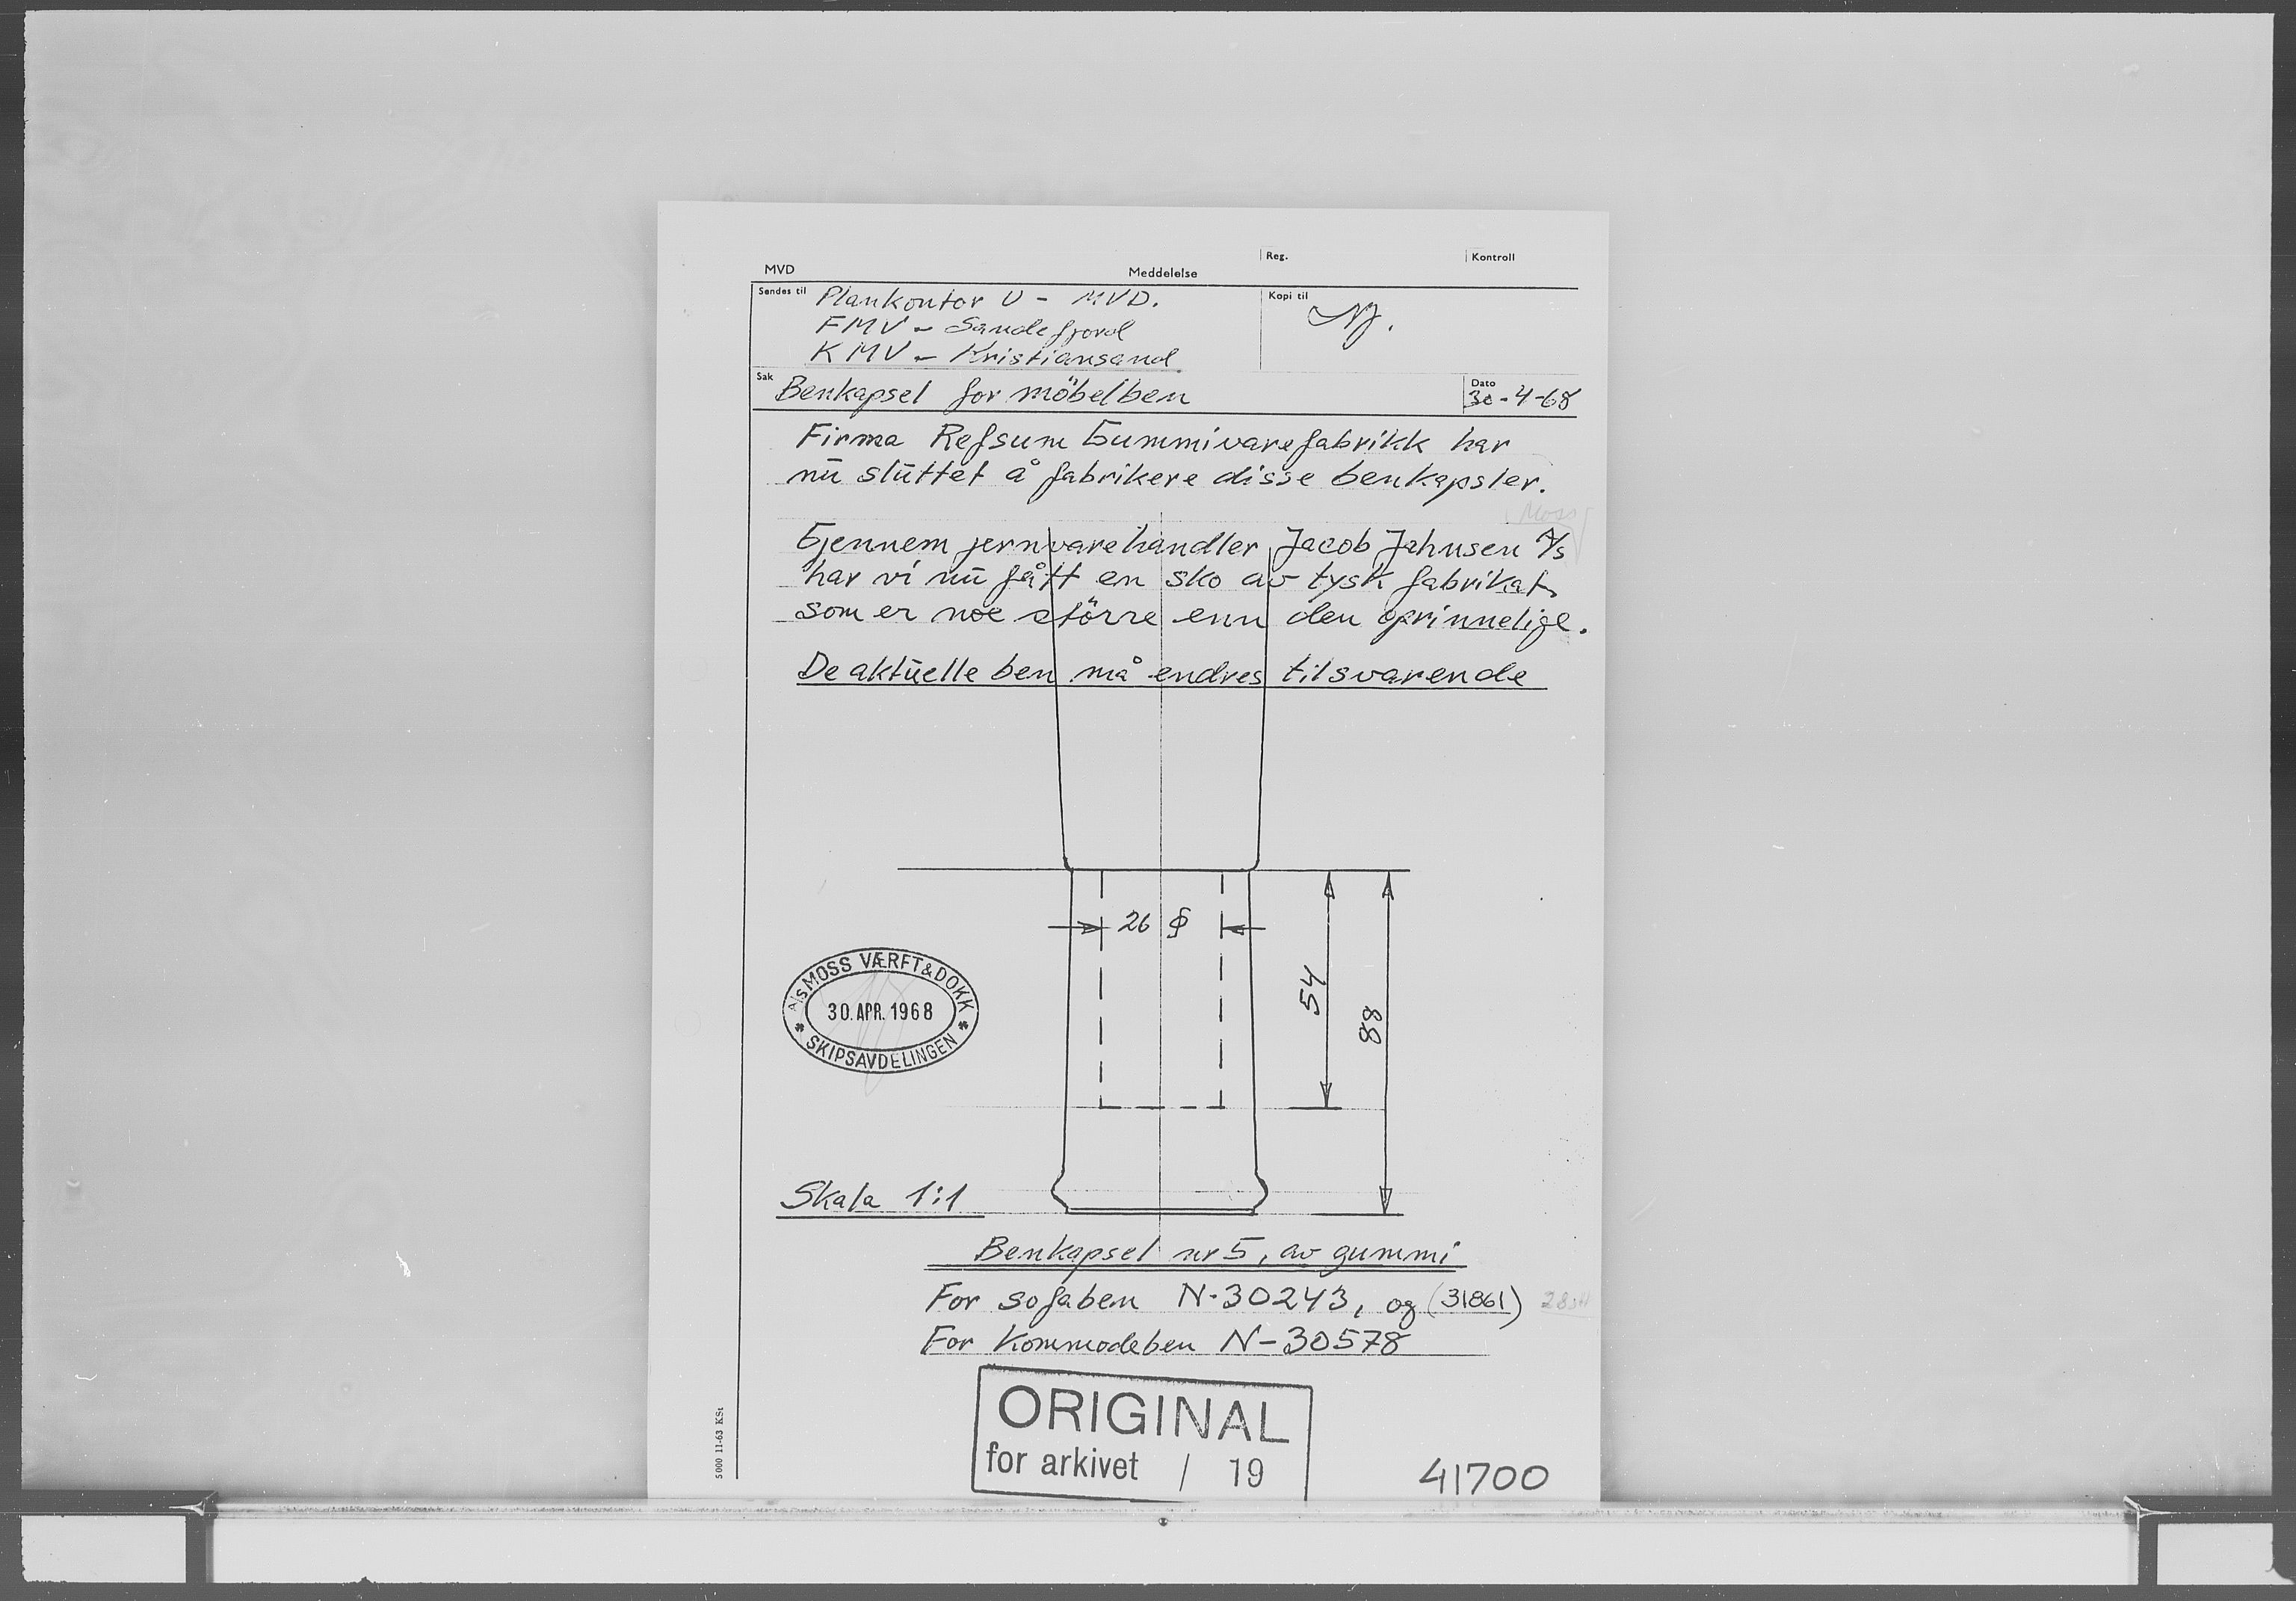 MVD Meddelelse Reg. Kontroll
Sendes til Plankontor U - MVD. Kopi til
FMV - Sandefjord
KMV - Kristiansand
Sak Benkapsel for möbelben Dato 30-4-68
Firma Refsum Gummivarefabrikk har
nū slūttet å fabrikere disse benkapsler.
Moss
Gjennem jernvarehandler Jacob Johnsen A/s
har vi nū fått en sko av tysk fabrikat
som er noe större enn den oprinnelige.
De aktūelle ben må endres tilsvarende
26 ϕ
54
88
A/S MOSS VÆRFT & DOKK
30. APR. 1968
SKIPSAVDELINGEN
Skala 1:1
Benkapsel nr 5, av gummi
For sofaben N-30243, og (31861)
For Kommodeben N-30578
ORIGINAL
for arkivet / 19
41700
5000 11-63 KSt